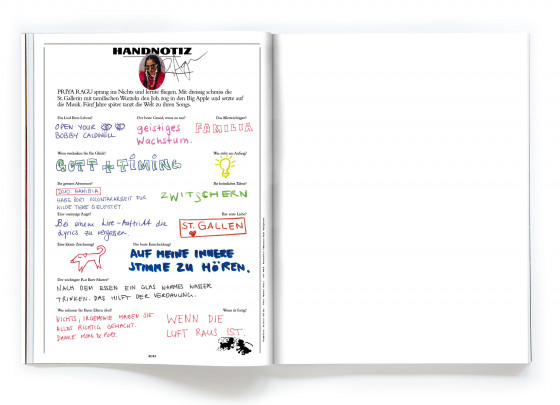 HANDNOTIZ
PRIYA RAGU sprang ins Nichts und lernte fliegen. Mit dreissig schmiss die
St.Gallerin mit tamilischen Wurzeln den Job, zog in den Big Apple und setzte auf
die Musik. Fünf Jahre später tanzt die Welt zu ihren Songs.
Das Lied Ihres Lebens?
Der beste Grund, wenn zu
Das Allerwichtigste?
OPEN YOUR
BOBBY CALDWELL
geistiges
Wachstum.
FAMILIA
Wem verdanken Sie Ihr Glück?
Was steht am Anfang?
GOTT + TIMING
Ihr grösstes Abenteuer?
Ihr heimliches Talent?
2010 NAMIBIA
HABE DORT VOLONTARARBEIT FÜR
WILDE TIERE GELEISTET.
ZWITSCHERN
Eine einzige Angst?
Ihre erste Liebe?
Bei einem Live-Auftritt die
Lyrics zu vergessen.
ST. GALLEN
Eine kleine Zeichnung?
Die beste Entscheidung?
AUF MEINE INNERE
STIMME ZU HÖREN.
Der wichtigste Rat Ihrer Mutter?
NACH DEM ESSEN EIN GLAS WARMES WASSER
TRINKEN. DAS HILFT DER VERDAUUNG.
Was müssen Sie Ihren Eltern
Wann ist fertig?
NICHTS, IRGENDWIE HABEN SIE
ALLES RICHTIG GEMACHT.
DANKE MOM & POPS.
WENN DIE
LUFT RAUS IST.